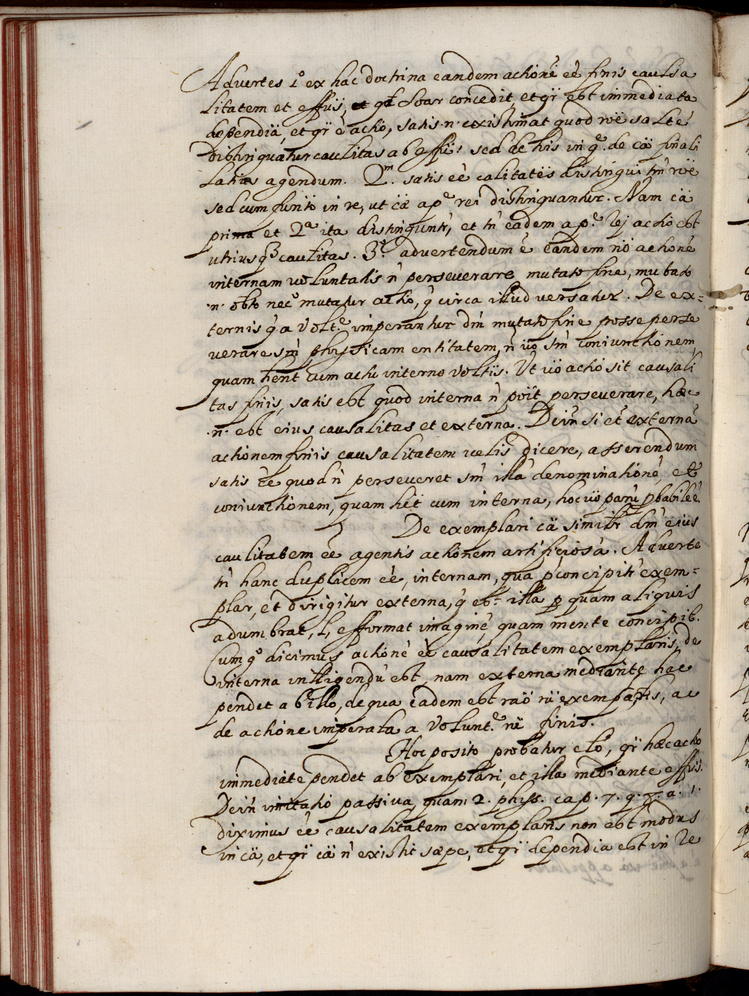 Advertes 1º ex hac doctrina eandem actionẽ eẽ finis causa
litatem et effũs, et qđ Soar concedit, et qĩ est immediata
dependiã, et qĩ ẽ actio, satis .n. existimat quod rõe saltẽ
distinguatur caulitas ab effũ: sed de his in qº. de cã finali
latiũs agendum. 2ᵐ. satis eẽ calitates distingui tñ rõe
sed cum funtõ in re, ut cã a pe rei distinguantur. Nam cã
prima et 2ª ita distingunt̃, et tñ eadem a pe. rej actio est
utriusqȝ caulitas. 3º. advertendum ẽ eandem nõ actionẽ
internam voluntatis ñ perseverare mutato fine, mutato
.n. obto nec̃ mutatur actio, q̃ circa illud versatur. De ex-
ternis q̃ a volte. imperantur dm̃ mutato fine posse perse
verare sm̃ physicam entitatem, ñ vº sm̃ coniunctionem
quam hent̃ cum actu interno voltis. Ut vº actio sit causali
tas finis, satis est quod interna ñ poit̃ perseverare, hæc
.n. est eius causalitas et externa. Dein̄ si et̃ externã
actionem finis causalitatem velis dicere, asserendum
satis eẽ quod ñ perseveret sm̃ illã denominationẽ et
coniunctionem, quam hẽt cum interna, hoc vº parũ pbabile ẽ
De exemplari cã similitr̃ dm̃ eius
caulitatem eẽ agentis actionem artificiosã. Adverte
tñ hanc duplicem eẽ, internam, qua p̃concipitr̃ exem-
plar, et dirigitur externa, q̃ est illa p quam aliquis
adumbrat, l, efformat imaginẽ quam mente concipit.
Cum qº dicimus actionẽ eẽ causalitatem exemplaris, de
interna intlligendũ est, nam externa mediante hac
pendet ab illo, de qua eadem est raõ rñ exemplaris, ac
de actione imperata a volunt.e rñ finis.
Hoc posito probatur clo, qĩ hæc actio
immediate pendet ab exemplari, et illa mediante effũs.
Dein̄ imitatio passiva, quam 2. phys. cap. 7. q. 7. a. 1.
diximus eẽ causalitatem exemplaris non est modus
in cã, et qĩ cã ñ existit sæpe, et qĩ dependia est in re